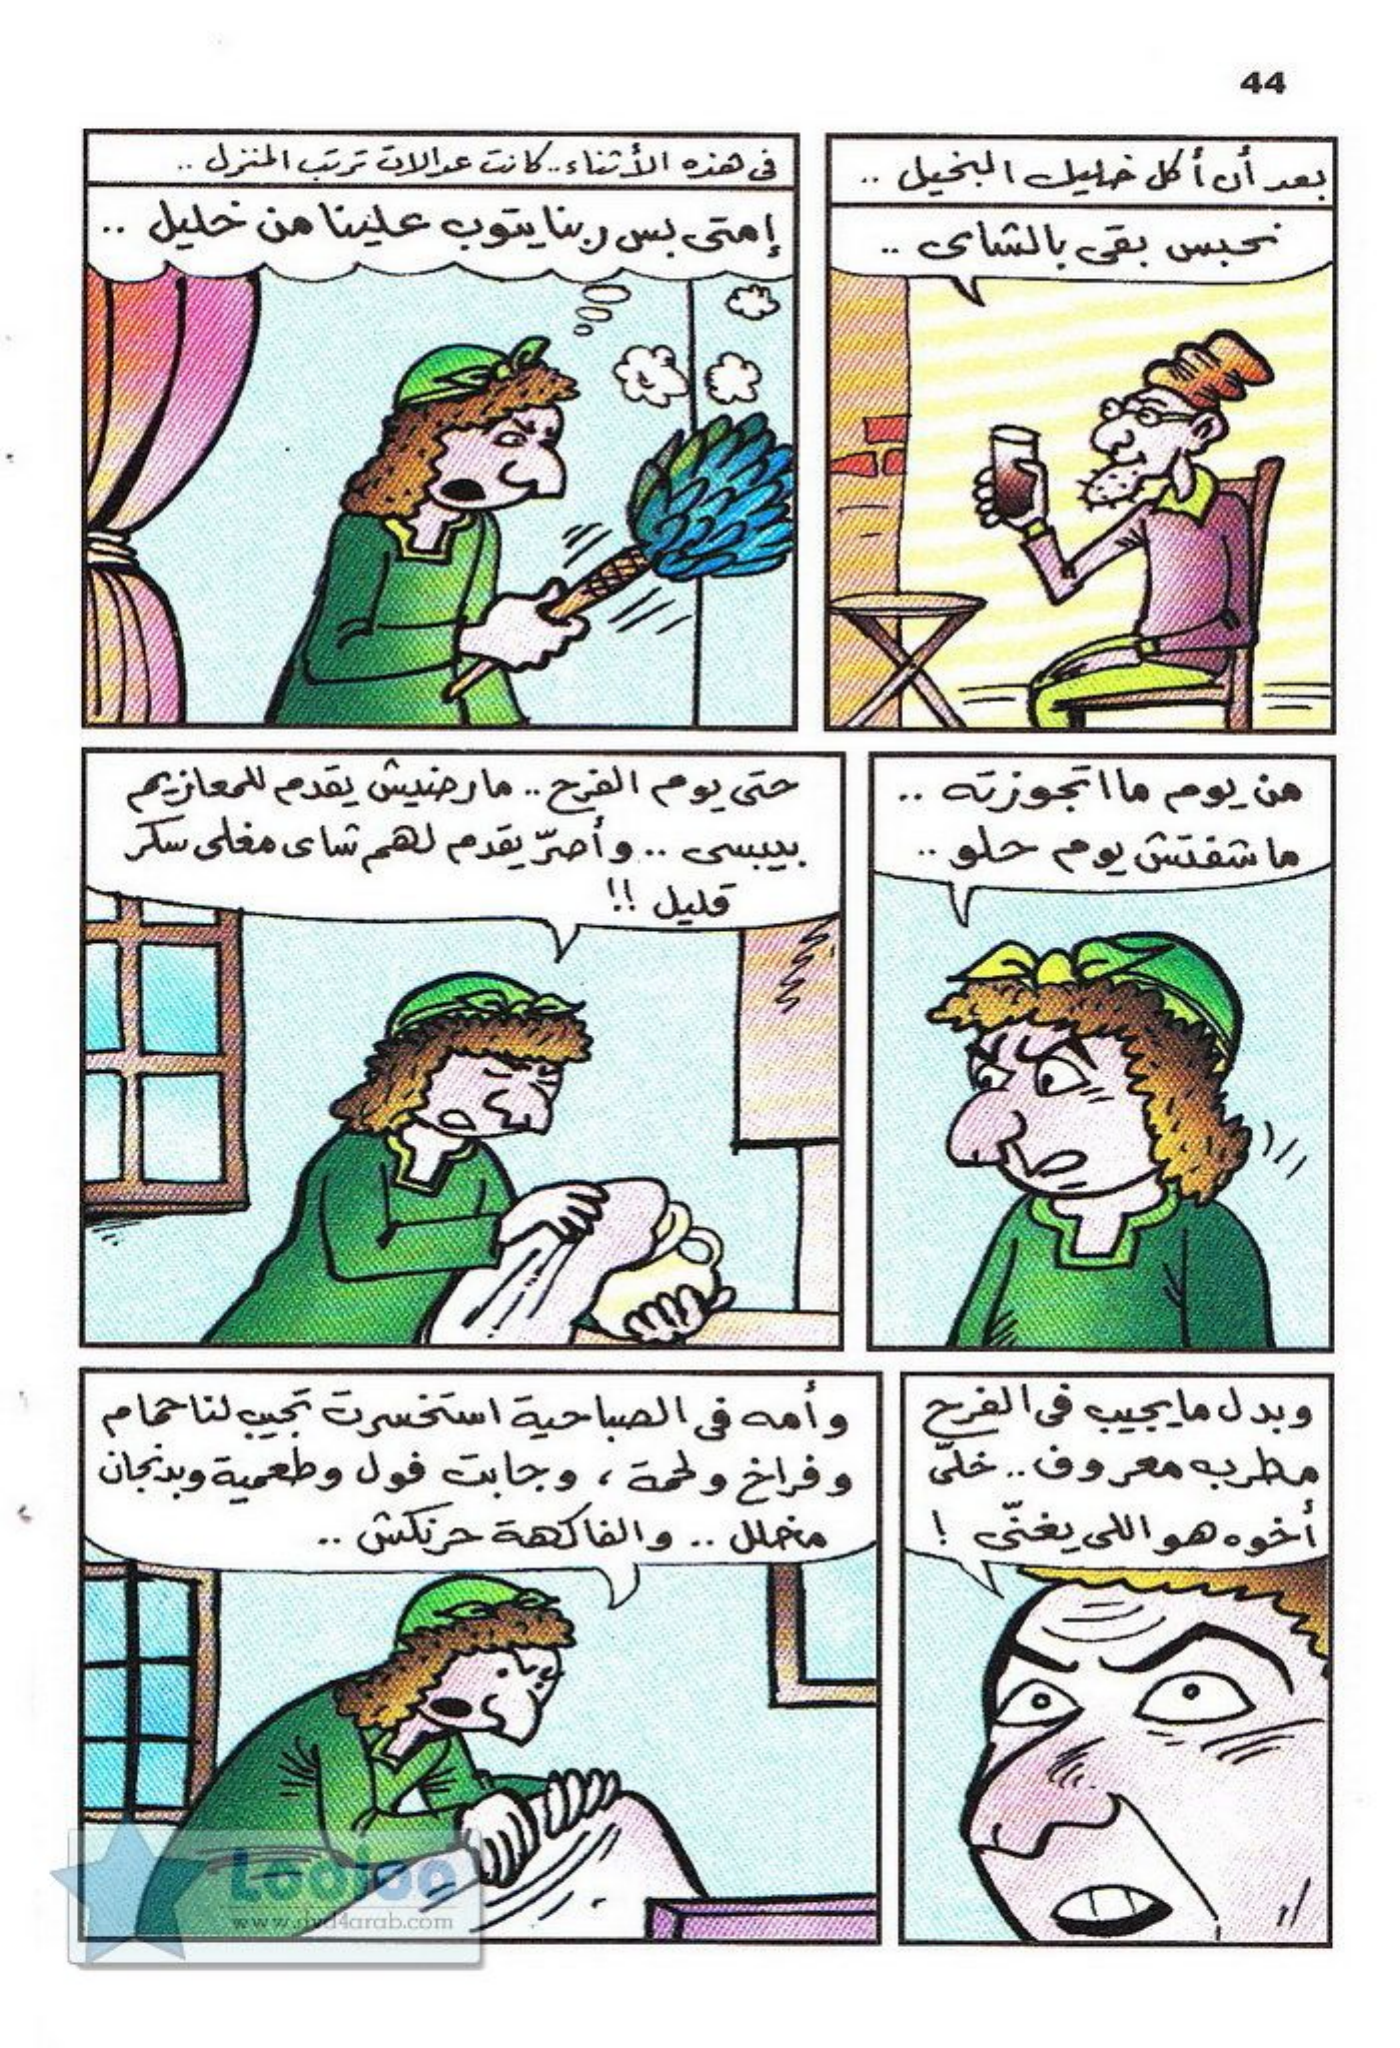 44
بعد أن أكل خليل البخيل ..
نحبس بقى بالشاى ..
فى هذه الأثناء .. كانت عدالات ترتب المنزل ..
إمتى بس ربنا يتوب علينا من خليل ..
من يوم ما اتجوزته ..
ما شفتش يوم حلو ..
حتى يوم الفرح .. مارضيش يقدم للمعازيم
بيبسى .. وأصرّ يقدم لهم شاى مغلى سكر
قليل !!
وبدل ما يجيب فى الفرح
مطرب معروف .. خلّى
أخوه هو اللى يغنّى !
وأمه فى الصباحية استخسرت تجيب لنا حمام
وفراخ ولحمة ، وجابت فول وطعمية وبدنجان
مخلل .. والفاكهة حرنكش ..
Looloo
www.dvd4arab.com